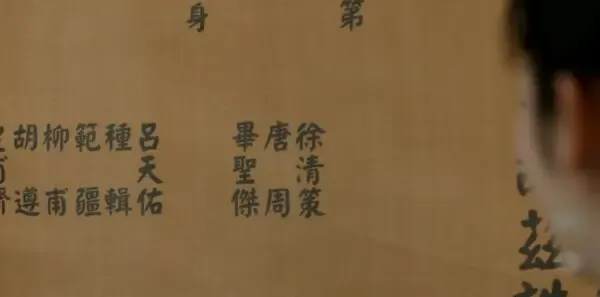 茲
第
徐清策
唐周
畢聖傑
身
呂天佑
種輯
範疆
柳甫
胡遵